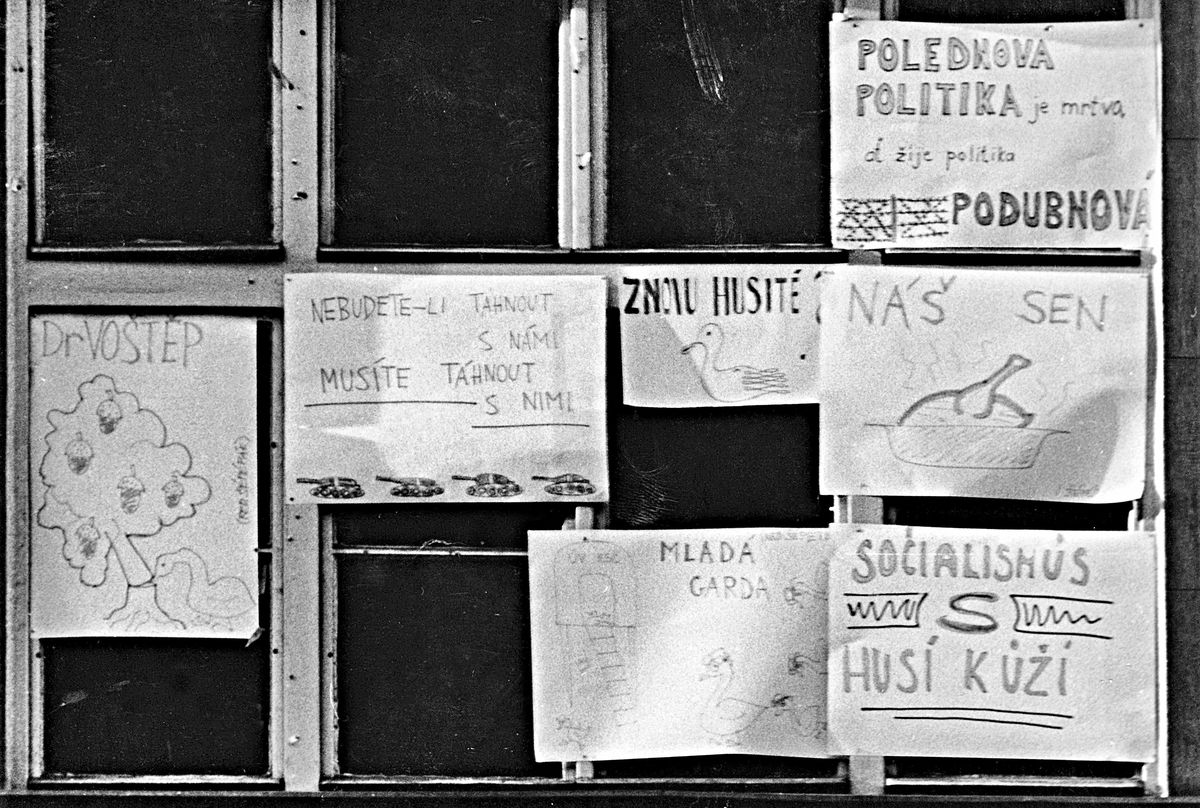 POLEDNOVA
POLITIKA je mrtva,
ať žije politika
PODUBNOVÁ
DrVOŠTĚP
NEBUDETE-LI TÁHNOUT
S NÁMI
MUSÍTE TÁHNOUT
S NIMI
ZNOVU HUSITÉ
NÁŠ SEN
MLADÁ
GARDA
ÚV KSČ
SOCIALISMUS
S
HUSÍ KŮŽÍ